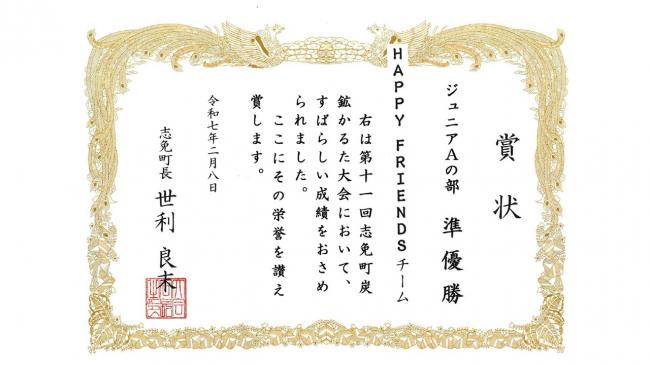 賞状
ジュニアAの部 準優勝
HAPPY FRIENDSチーム
右は第十一回志免町炭
鉱かるた大会において、
すばらしい成績をおさめ
られました。
ここにその栄誉を讃え
賞します。
令和七年二月八日
志免町長 世利良末